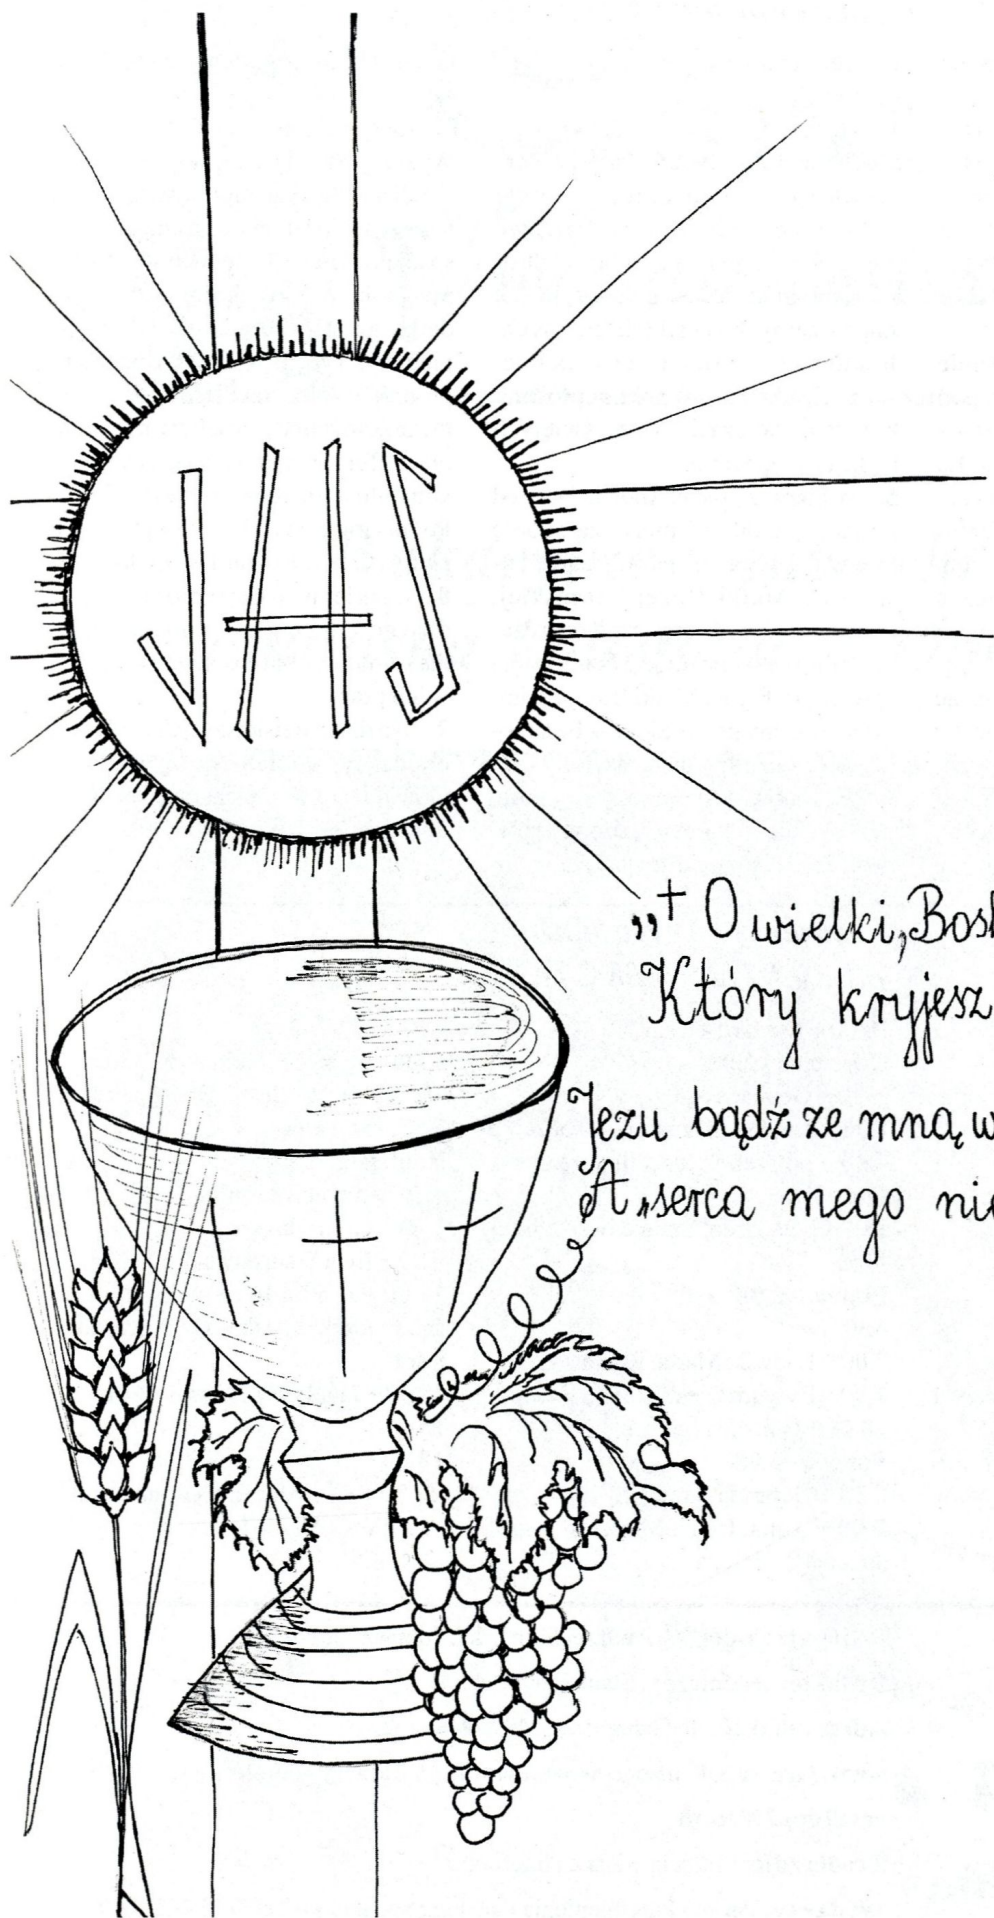 JHS
„† O wielki, Bosk
Który kryjesz
Jezu bądź ze mną, w
A „serca mego nie